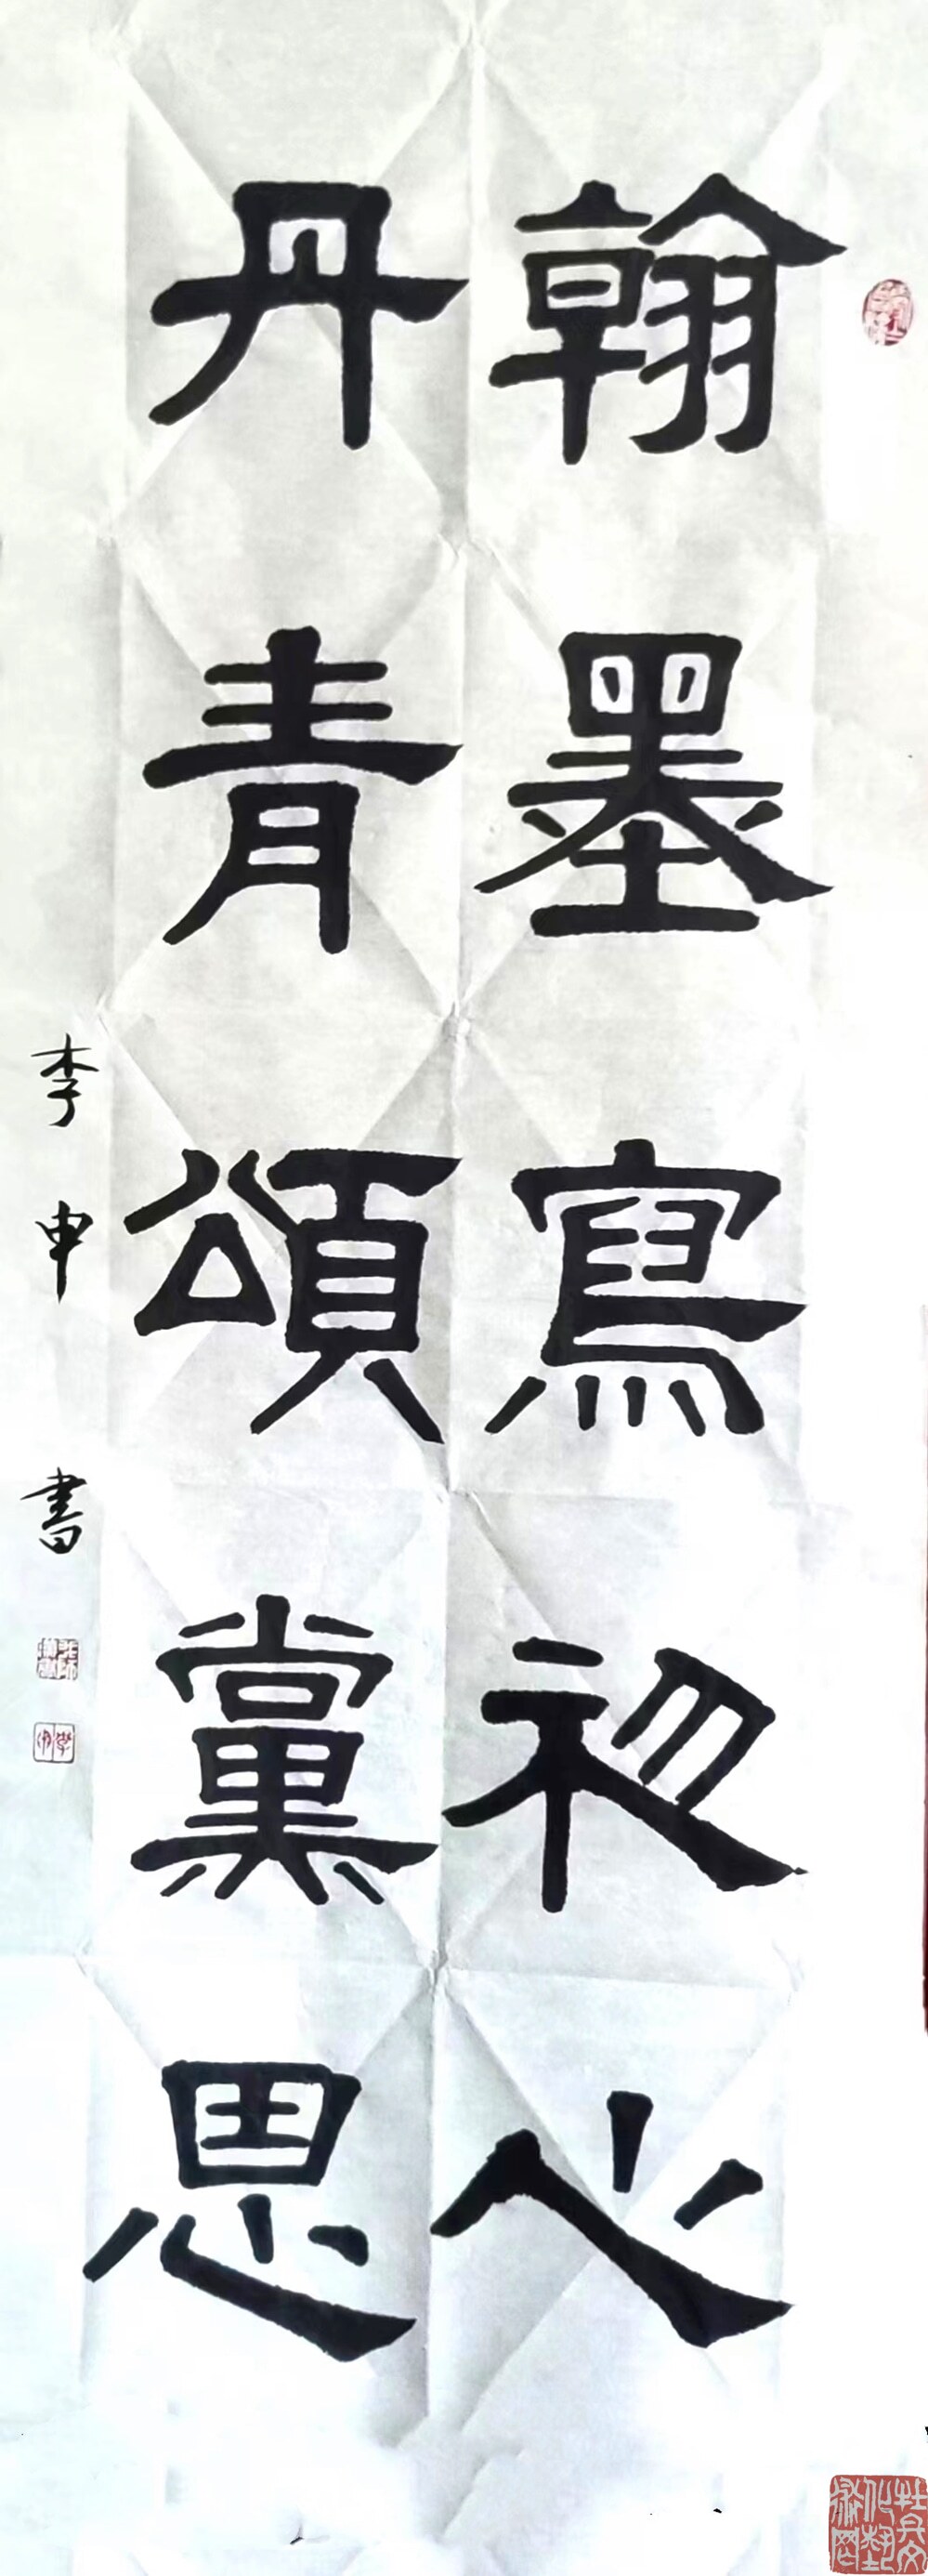 翰墨寫初心
丹青頌黨思
李申書